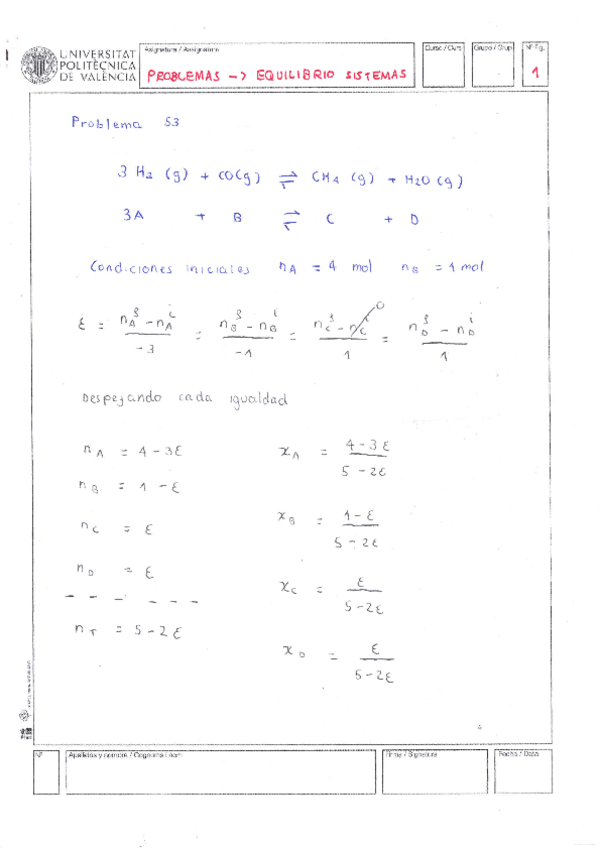 UNIVERSITAT
POLITÈCNICA
DE VALÈNCIA
Asignatura / Assignatura
PROBLEMAS -> EQUILIBRIO SISTEMAS
Curso / Curs
Grupo / Grup
Nº Pg.
1
Problema 53
3 H2 (g) + CO(g) ⇌ CH4 (g) + H2O (g)
3A + B ⇌ C + D
Condiciones iniciales nA = 4 mol nB = 1 mol
ε = (nA^f - nA^i)/-3 = (nB^f - nB^i)/-1 = (nC^f - nC^i)/1 = (nD^f - nD^i)/1
0
Despejando cada igualdad
nA = 4 - 3ε
xA = (4 - 3ε)/(5 - 2ε)
nB = 1 - ε
xB = (1 - ε)/(5 - 2ε)
nC = ε
nD = ε
xC = ε/(5 - 2ε)
nT = 5 - 2ε
xD = ε/(5 - 2ε)
Nº
Apellidos y nombre / Cognoms i nom
Firma / Signatura
Fecha / Data